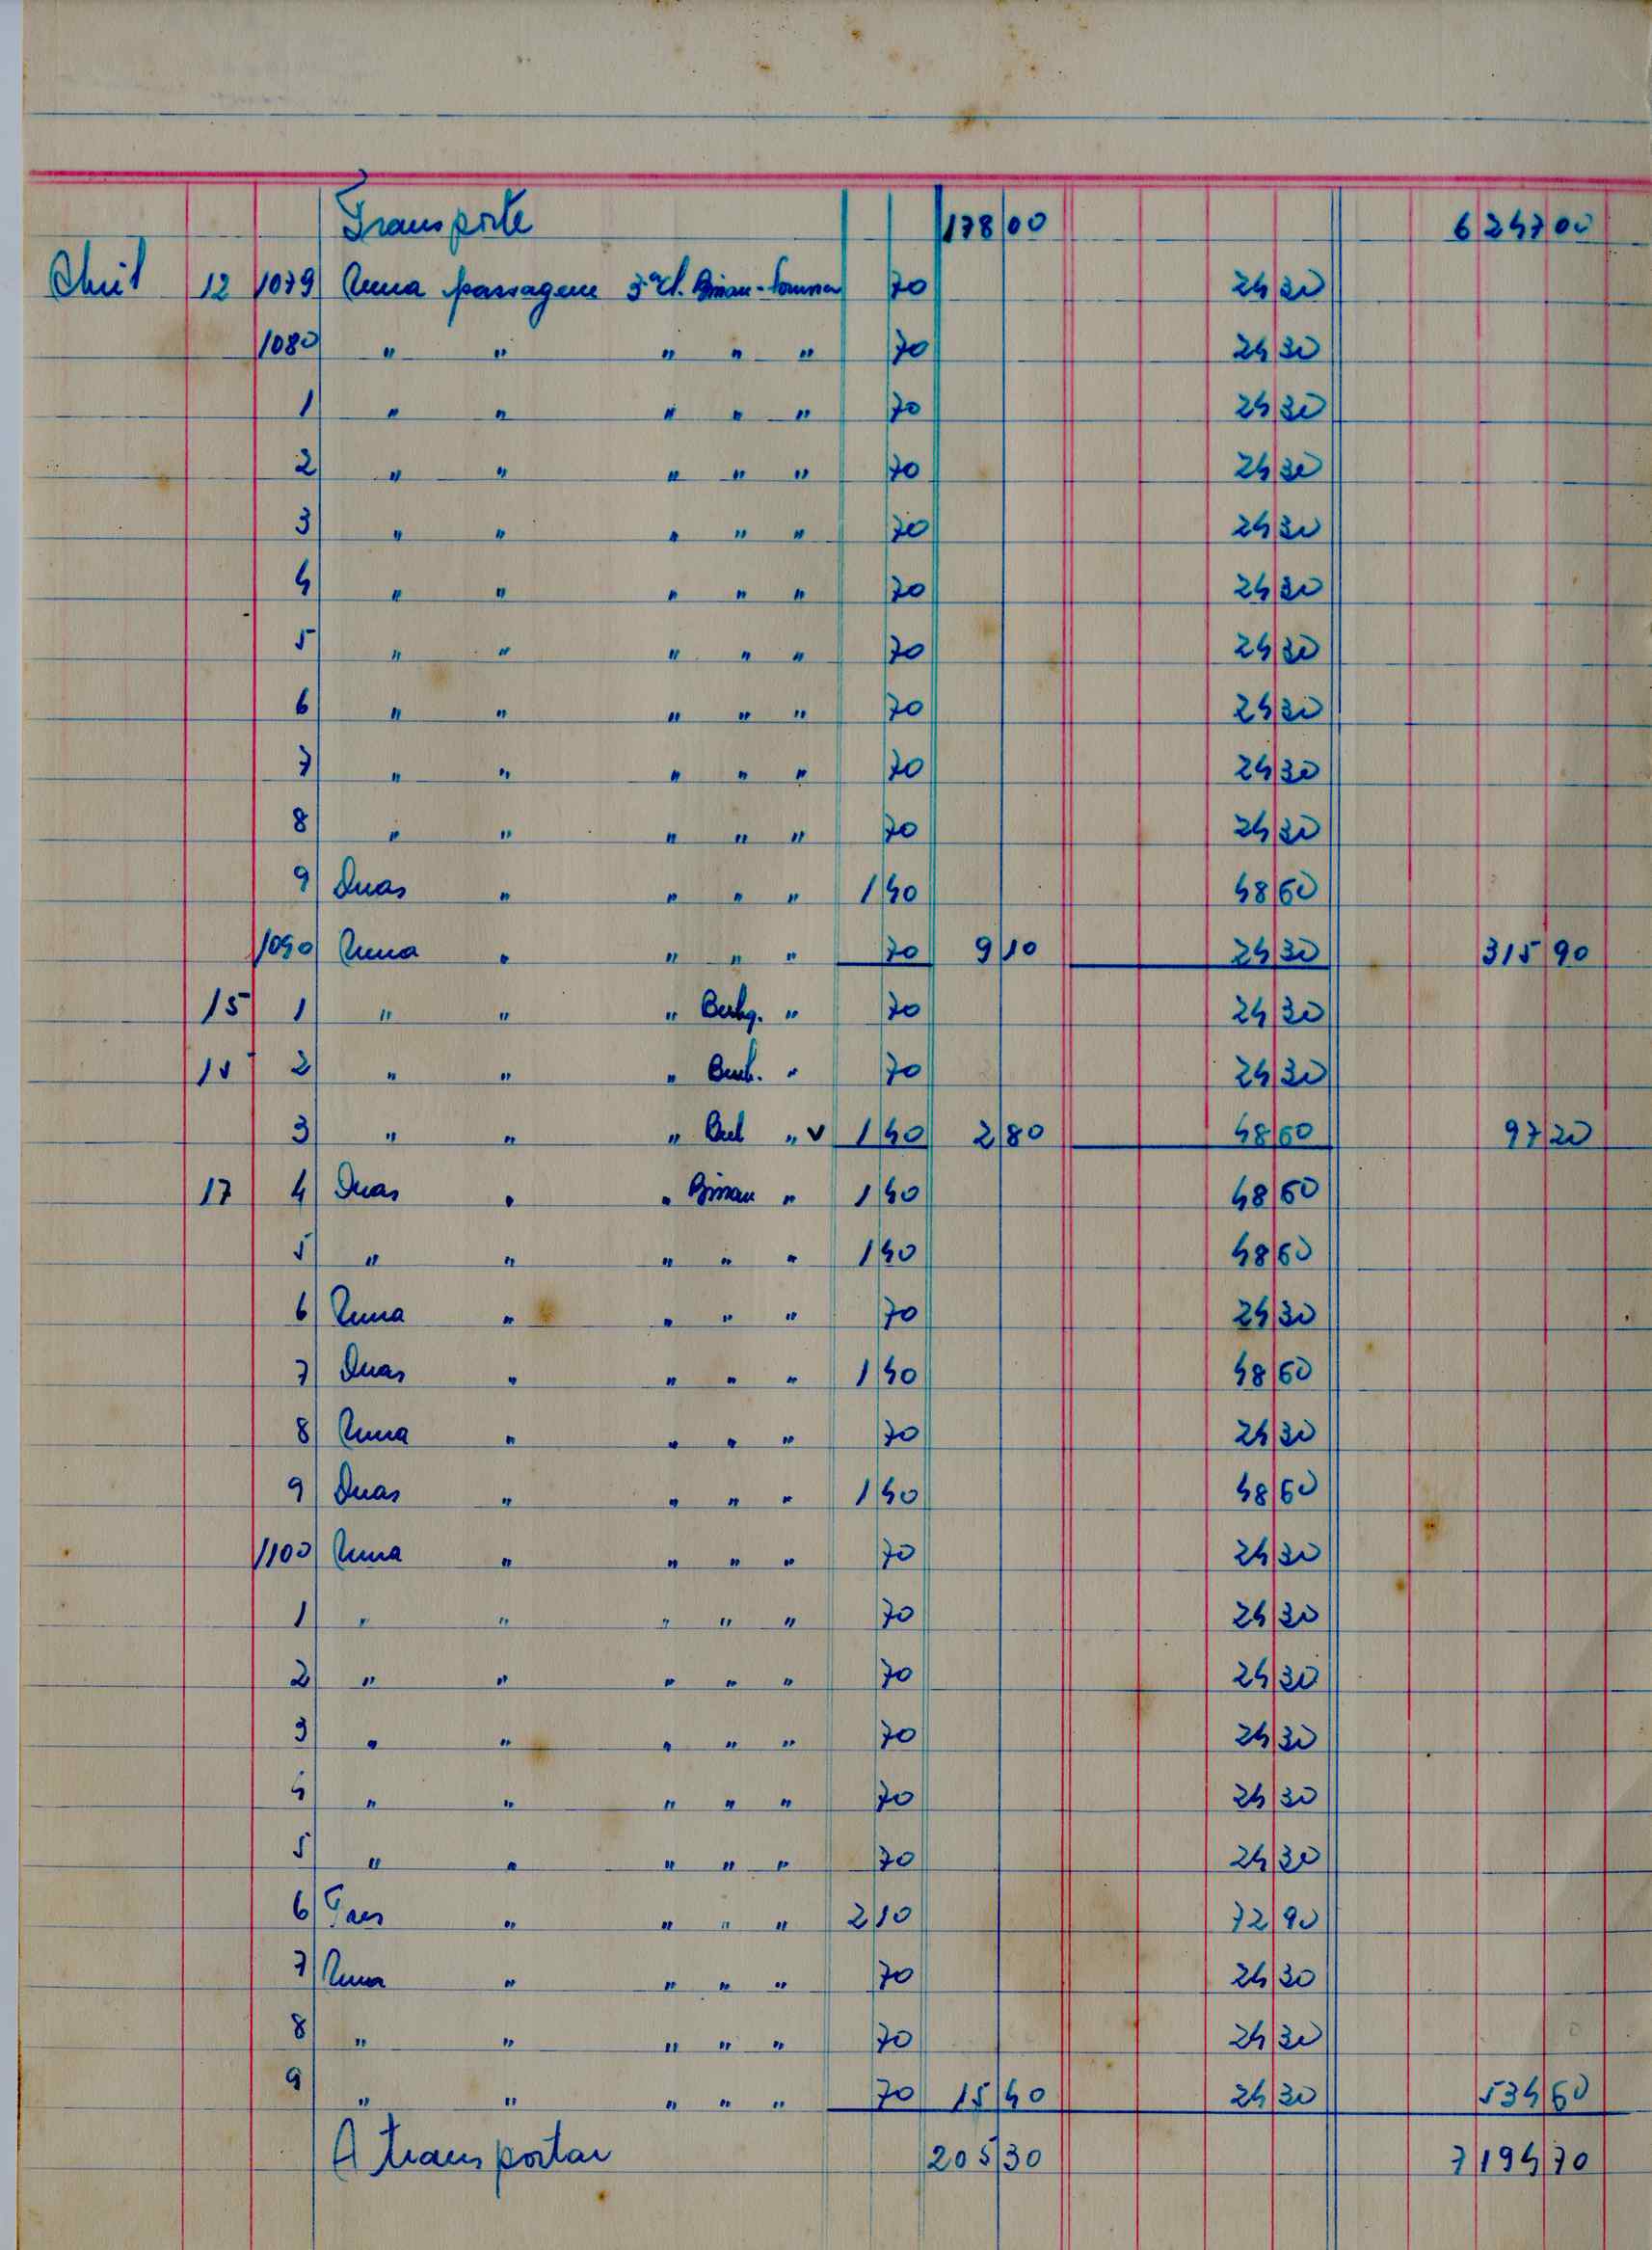 Transporte 178 00 6247 00
Abril 12 1079 Uma passagem 3ª cl. Bissau- 70 24 30
1080 " " " " " 70 24 30
1 " " " " " 70 24 30
2 " " " " " 70 24 30
3 " " " " " 70 24 30
4 " " " " " 70 24 30
5 " " " " " 70 24 30
6 " " " " " 70 24 30
7 " " " " " 70 24 30
8 " " " " " 70 24 30
9 Duas " " " " 1 40 48 60
1090 Uma " " " " 70 9 10 24 30 315 90
15 1 " " " " 70 24 30
2 " " " " 70 24 30
3 " " " " v 1 40 2 80 48 60 97 20
17 4 Duas " " Bissau " 1 40 48 60
5 " " " " " 1 40 48 60
6 Uma " " " " 70 24 30
7 Duas " " " " 1 40 48 60
8 Uma " " " " 70 24 30
9 Duas " " " " 1 40 48 60
1100 Uma " " " " 70 24 30
1 " " " " " 70 24 30
2 " " " " " 70 24 30
3 " " " " " 70 24 30
4 " " " " " 70 24 30
5 " " " " " 70 24 30
6 Tres " " " " 2 10 72 90
7 Uma " " " " 70 24 30
8 " " " " " 70 24 30
9 " " " " " 70 15 40 24 30 534 60
A transportar 205 30 7194 70